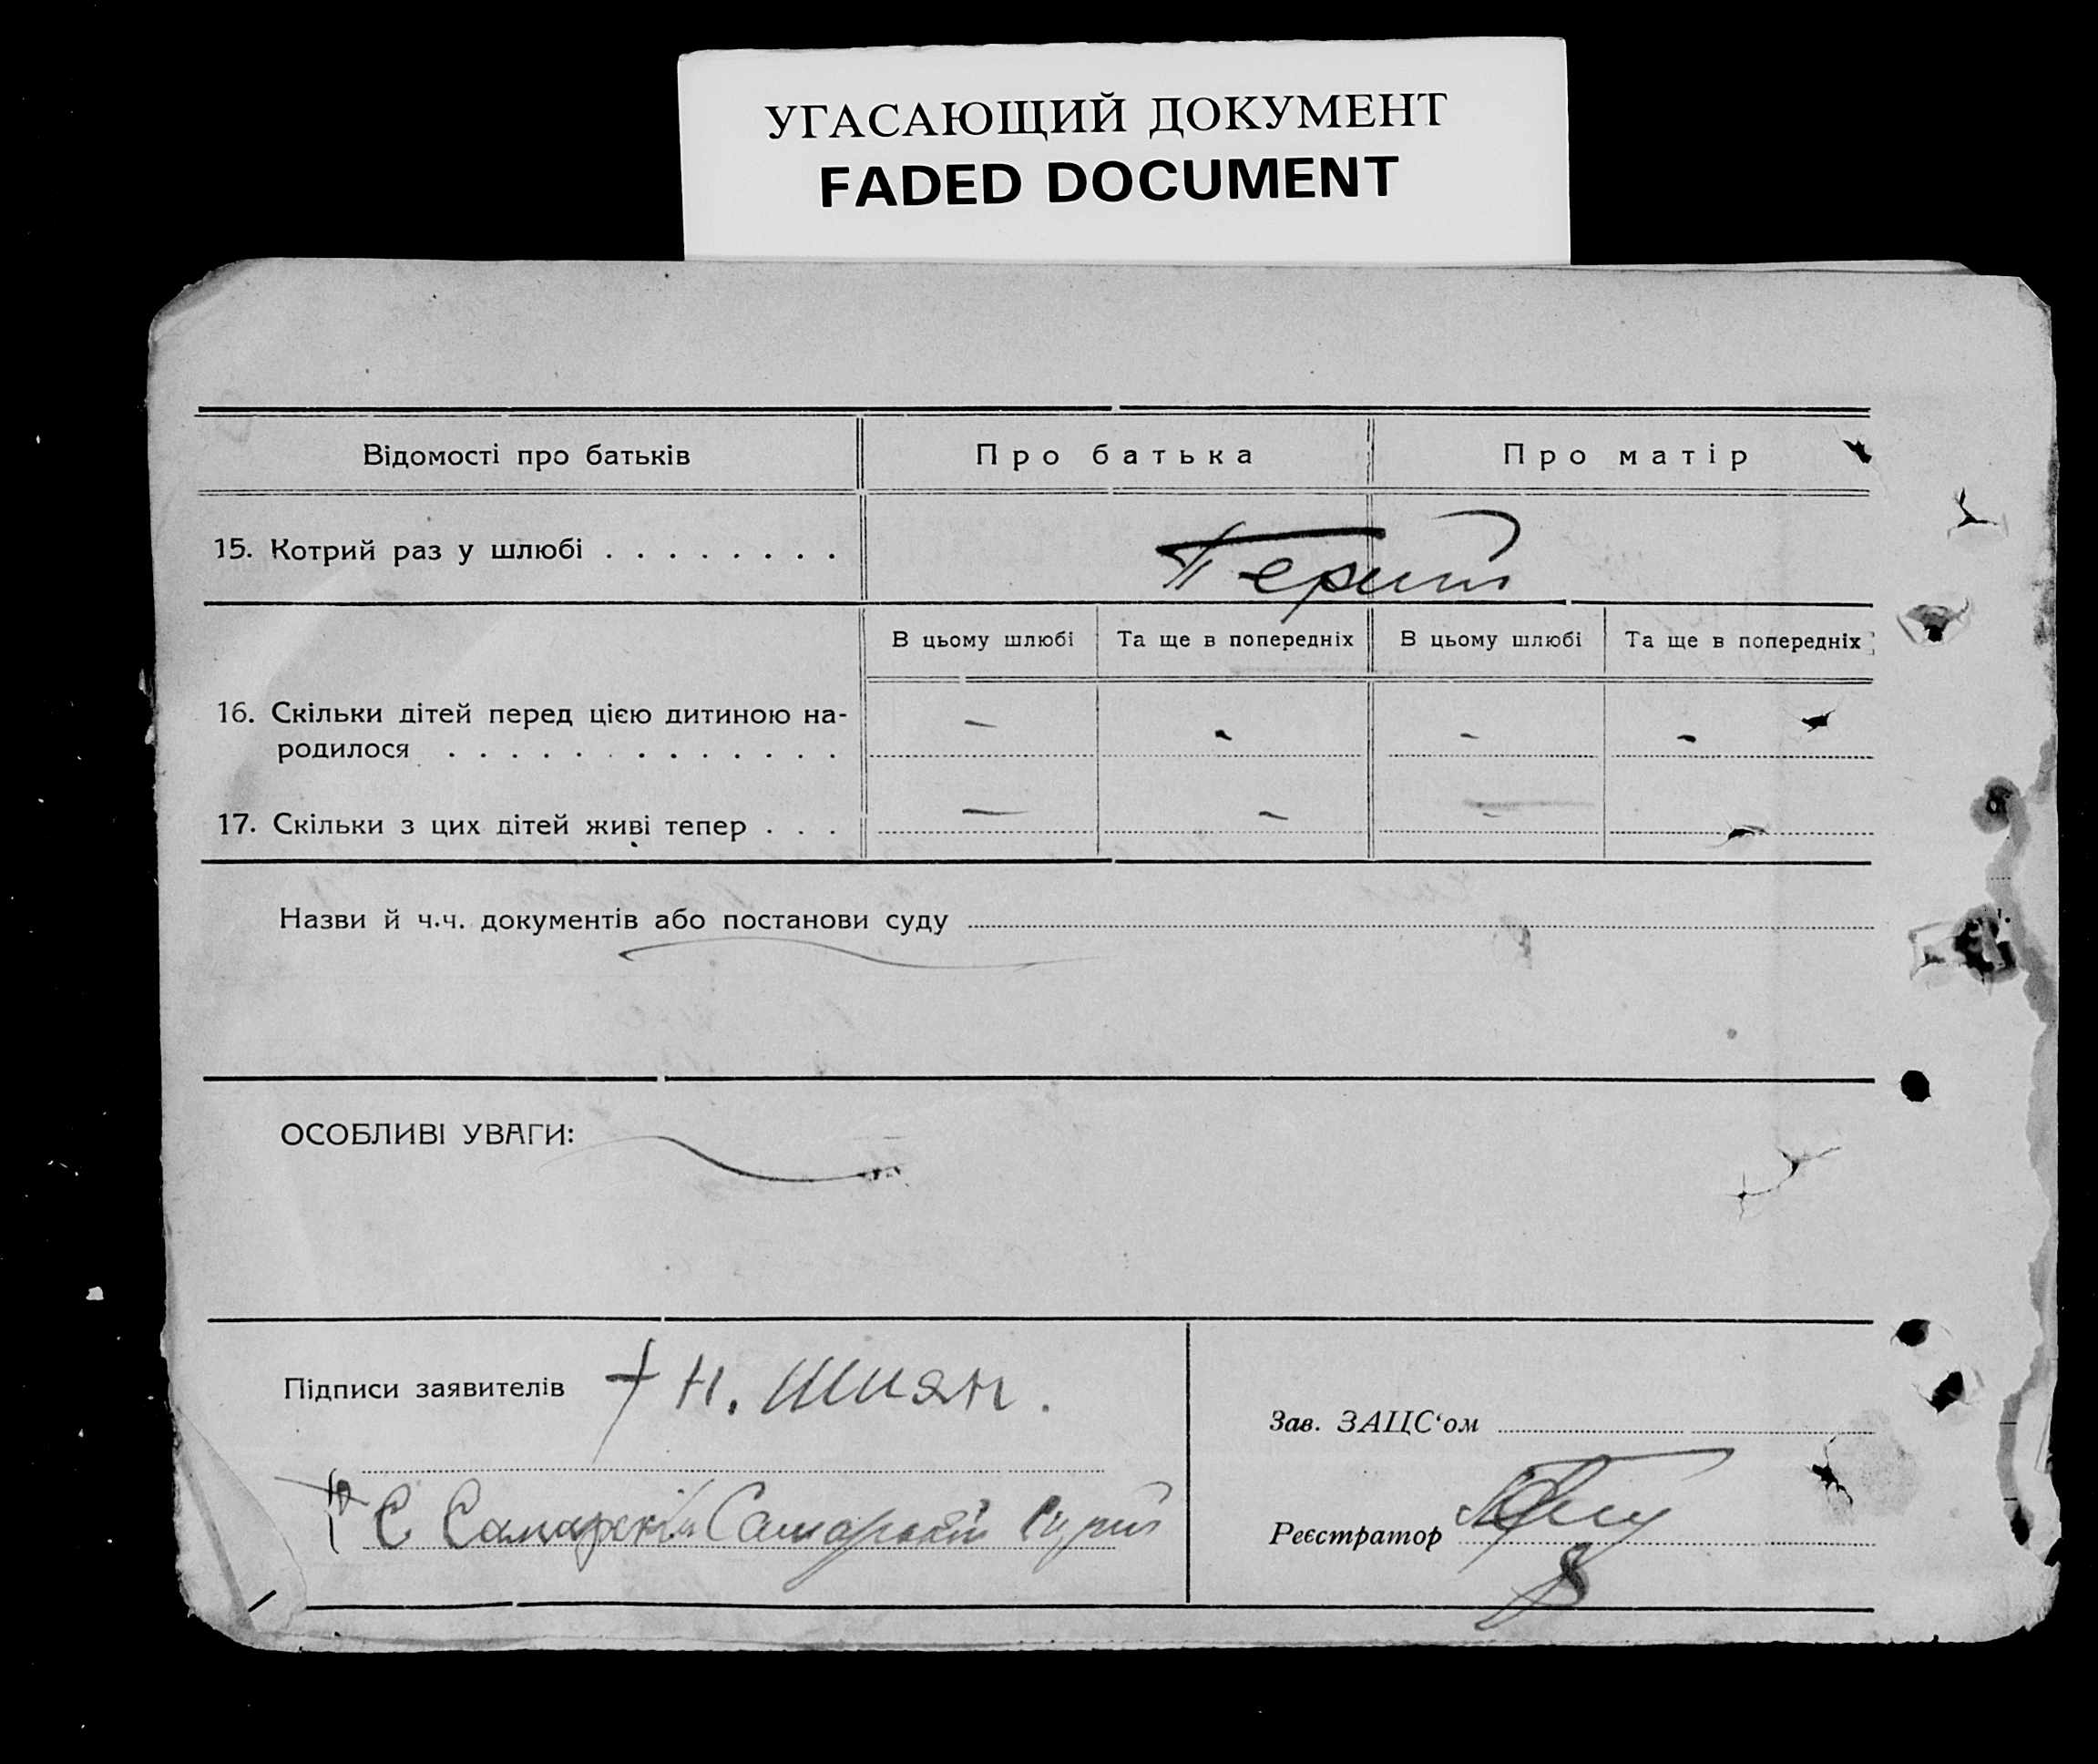 УГАСАЮЩИЙ ДОКУМЕНТ
FADED DOCUMENT
Відомості про батьків Про батька Про матір
15. Котрий раз у шлюбі . . . . . . . .
В цьому шлюбі Та ще в попередніх В цьому шлюбі Та ще в попередніх
16. Скільки дітей перед цією дитиною на-
родилося . . . . . . . . . . . . .
– - - -
17. Скільки з цих дітей живі тепер . . .
– - - -
Назви й ч.ч. документів або постанови суду
ОСОБЛИВІ УВАГИ:
Підписи заявителів + Н. Шиян.
Зав. ЗАЦС‘ом
Є Самарскій Самарский
Реєстратор